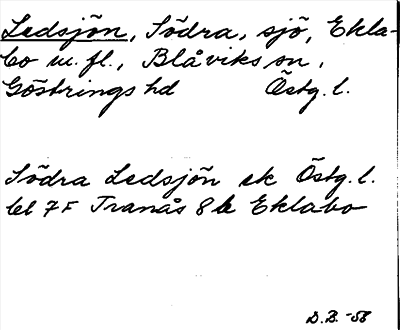 Ledsjön, Södra, sjö, Ekla-
bo m.fl., Blåviks sn,
Göstrings hd Östg. l.
Södra Ledsjön ek Östg. l.
bl 7F Tranås 8b Eklabo
D.B. -58